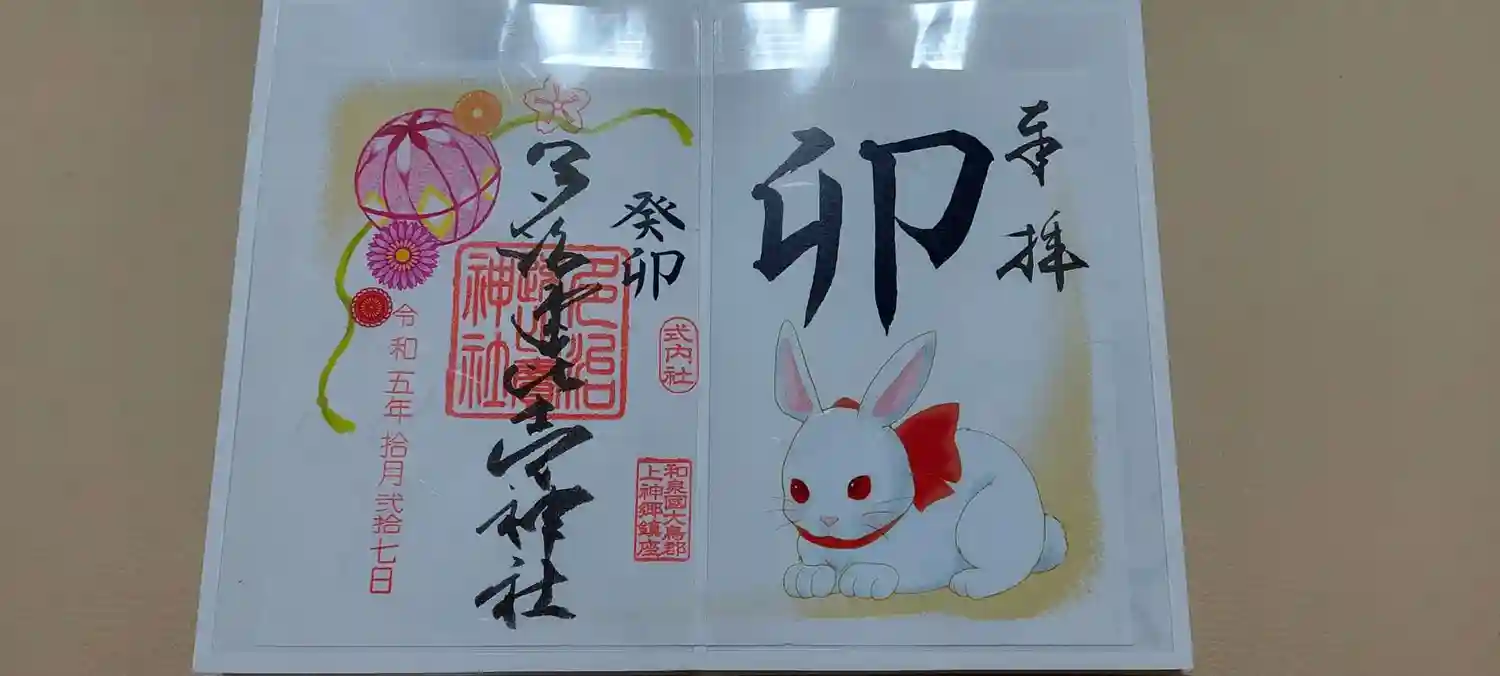 奉拝
卯
癸卯
式内社
和泉國大鳥郡
上神郷鎮座
多治速比売神社
多治
速比賣
神社
令和五年拾月弐拾七日